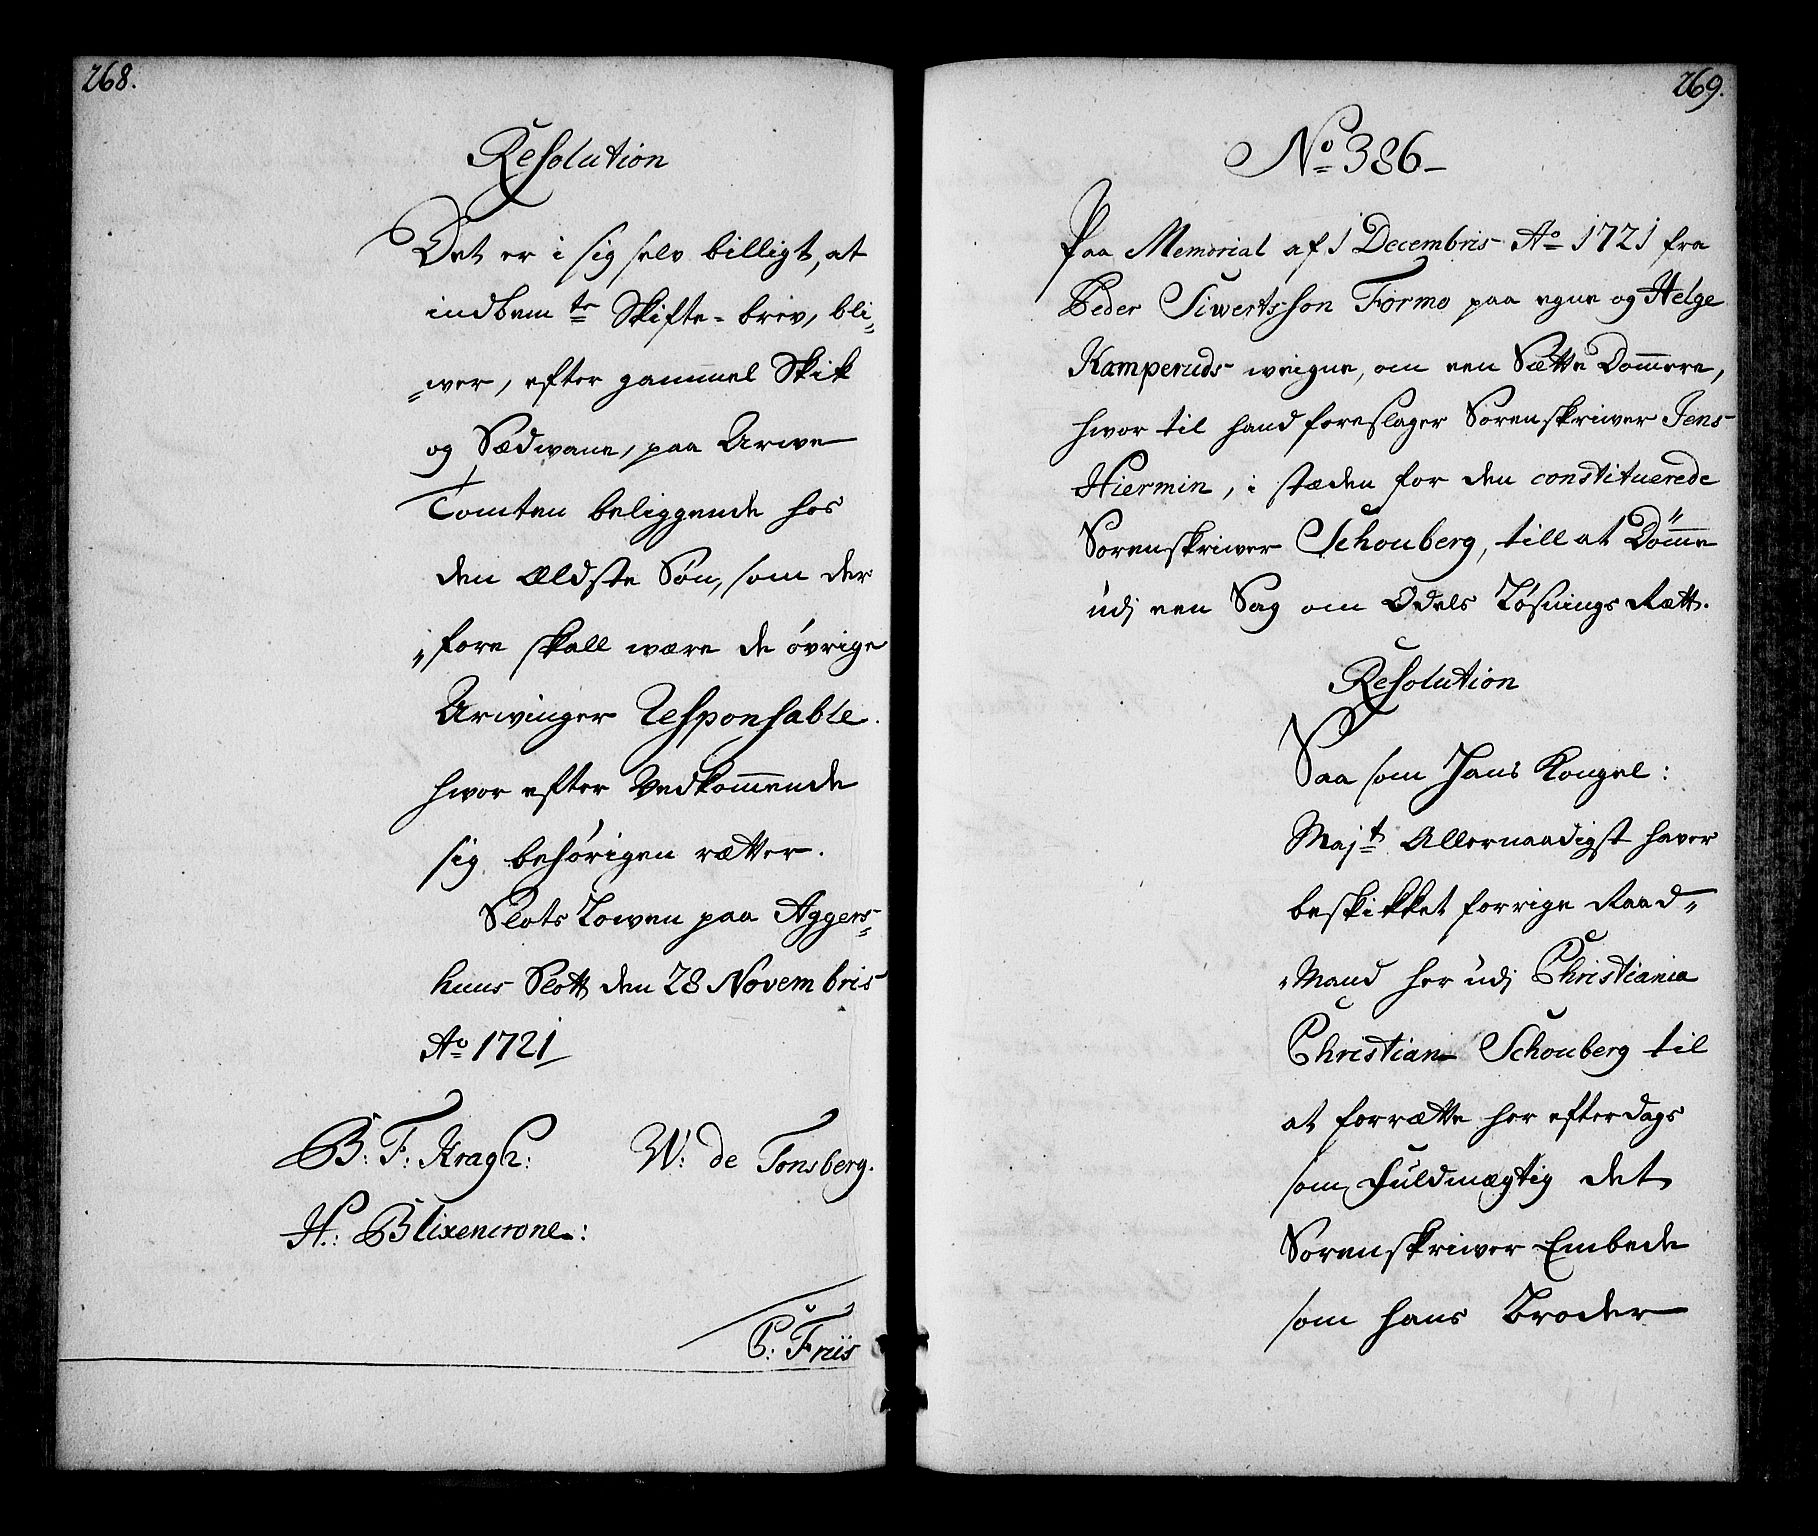 268.
Resolution
Det er i sig selv billigt, at
indbem.te Skifte-brev, bli„
„wer, efter gammel Skik
og Sædwane, paa Arwe
Tomten beliggende hos
den Ældste Søn, som der
„fore skall være de øvrige
Arvinger Responsable.
hvor efter Vedkommende
sig behörigen rætter.
Slots Lowen paa Aggers„
huus Slott den 28 Novembris
Ao 1721
B: F: Kragh: W: de Tonsberg.
H: Blixencrone:
P: Friis
269.
No 386
Paa Memorial af 1 Decembris Ao 1721 fra
Peder Siwertsson Formo paa egne og Helge
Kamperuds weigne, om een Sætte Dommere,
hvor til hand foreslager Sorenskriwer Jens
Hiermin, i stæden for den constituerede
Sorenskriwer Schouberg, till at Dömme
udj een Sag om Odels Løsnings Rætt.
Resolution
Saa som Hans Kongel:
Majt. Allernaadigst haver
beskikket forrige Raad„
„Mand her udj Christiania
Christian Schouberg til
at forrætte her efterdags
som Fuldmægtig det
Sorenskriwer Embede
som hans Broder